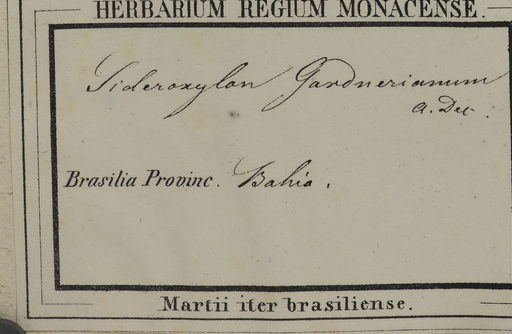 HERBARIUM REGIUM MONACENSE.
Sideroxylon Gardnerianum
A. Dec.
Brasilia Provinc. Bahia.
Martii iter brasiliense.